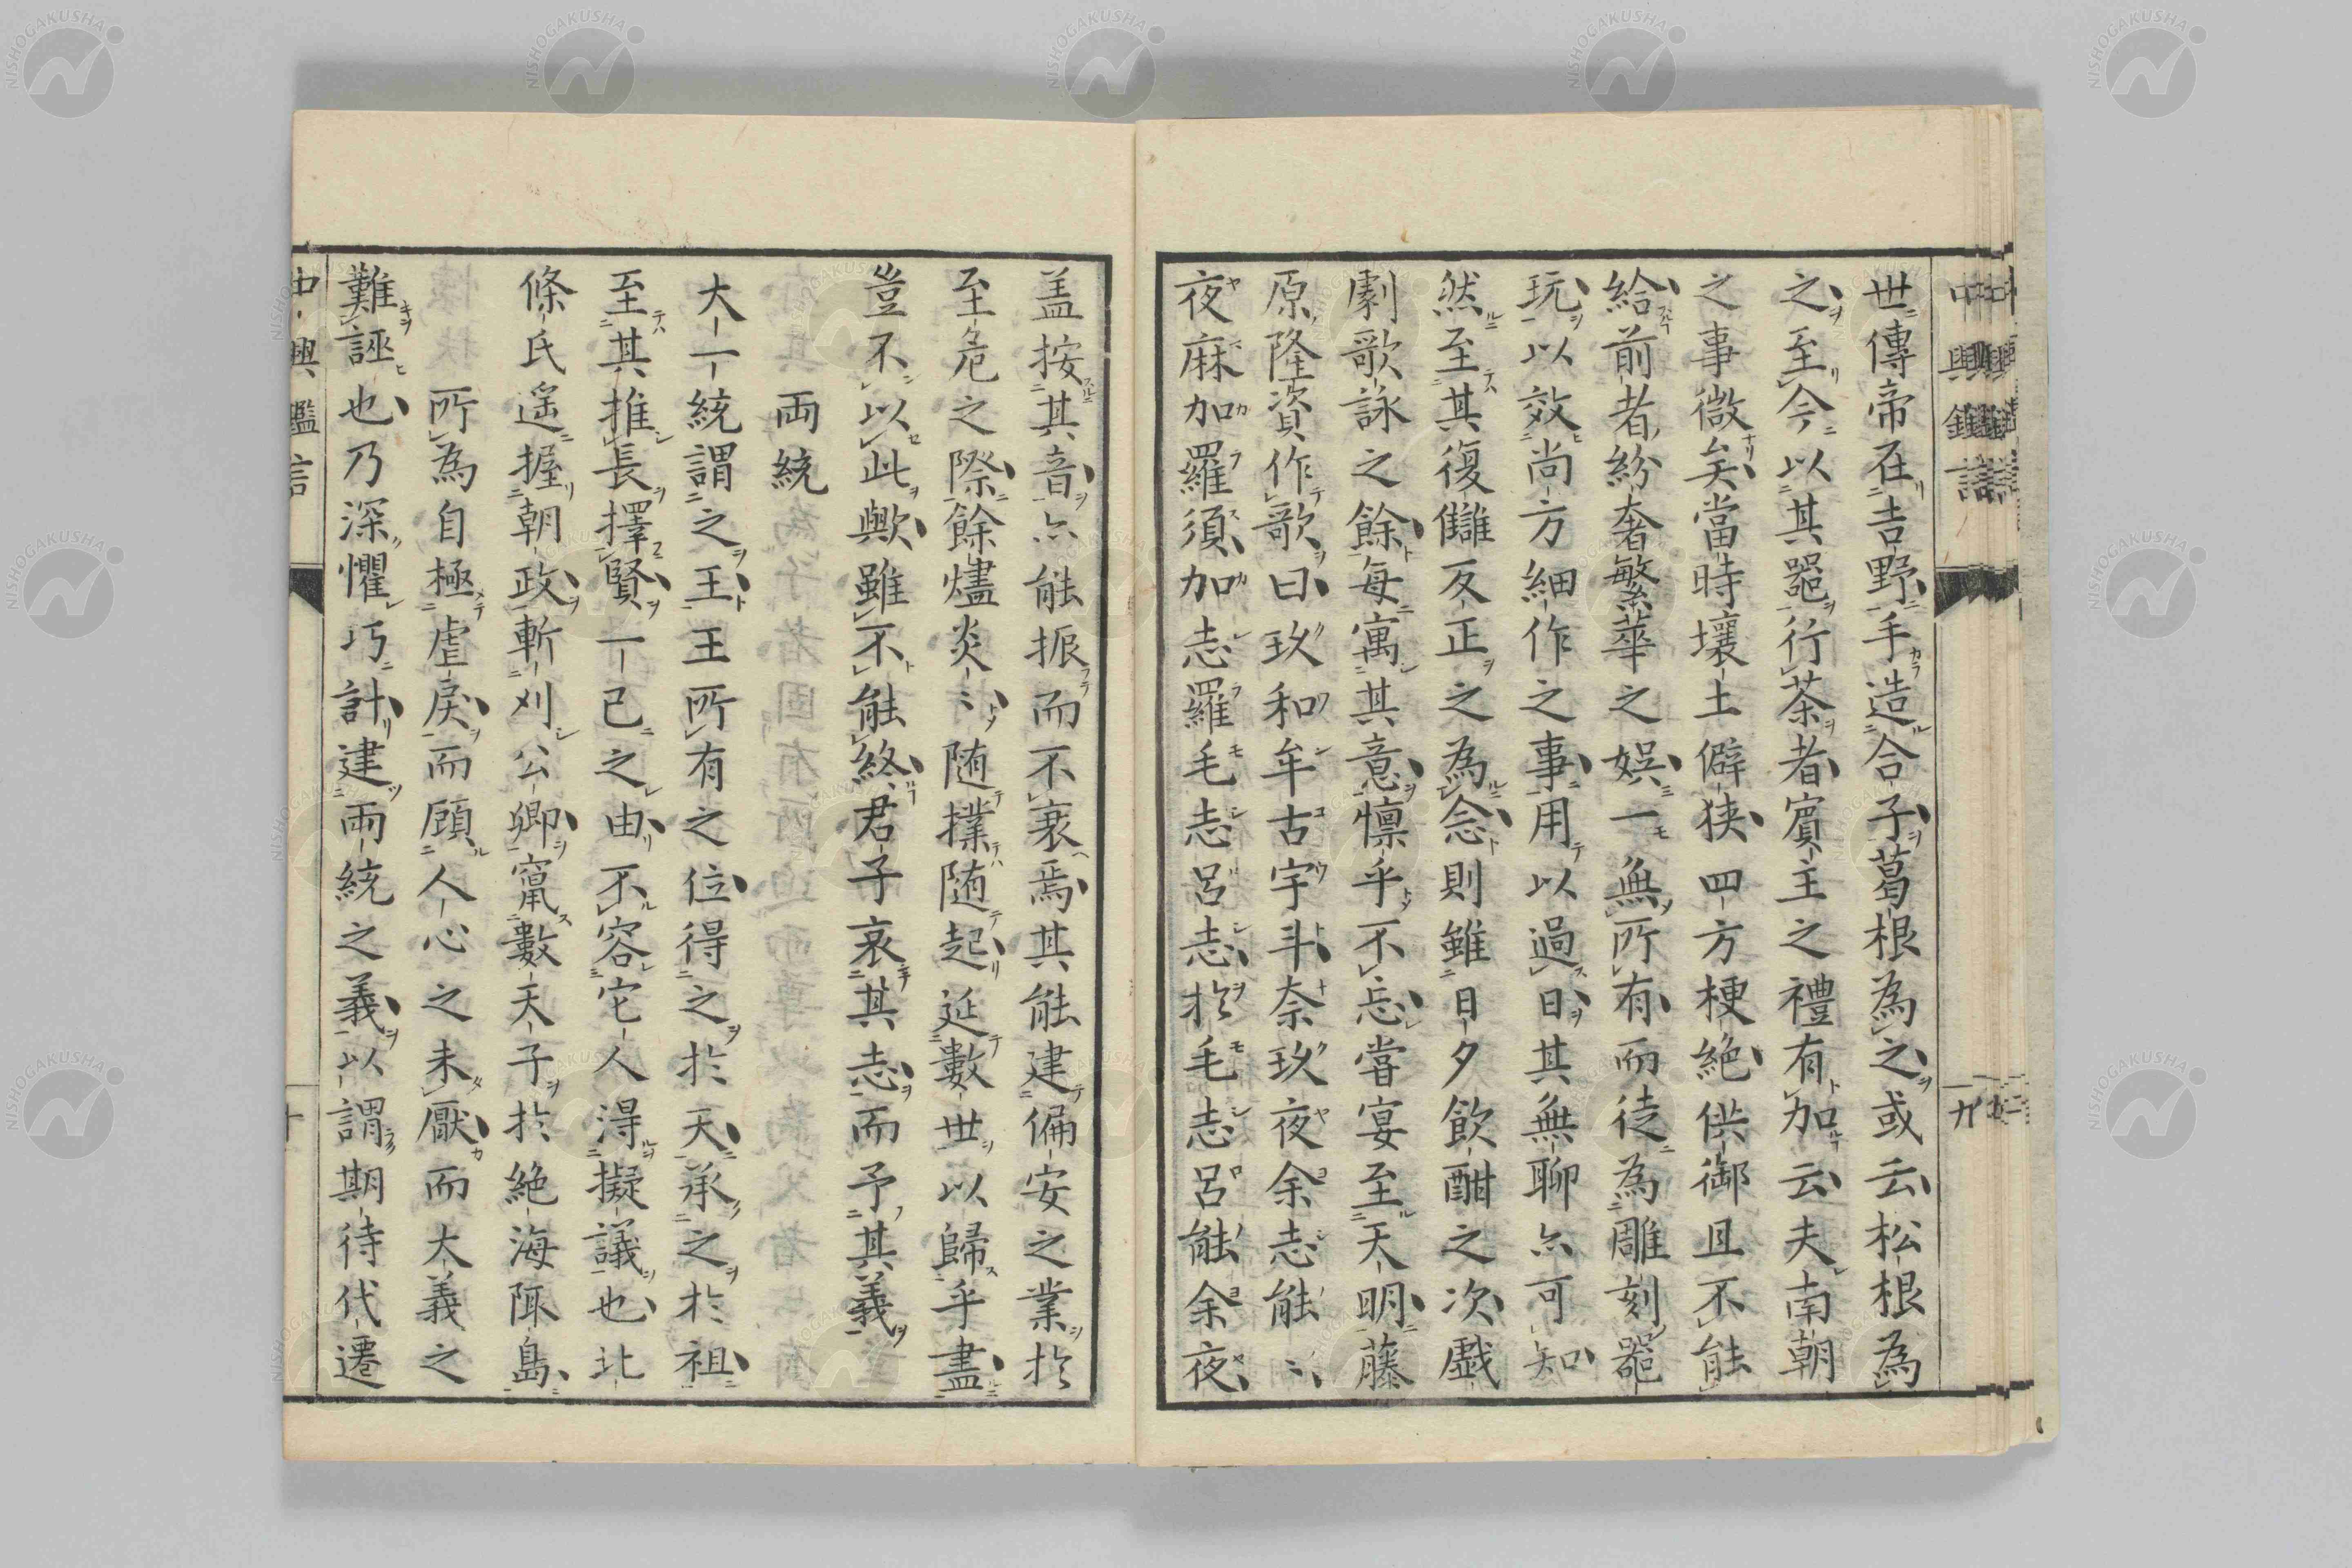 世傳帝在吉野手造合子葛根為之或云松根為
之至今以其器行茶者賓主之禮有加云夫南朝
之事微矣當時壤土僻狹四方梗絶供御且不能
給前者紛奢繁華之娯一無所有而徒為雕刻器
玩以效尚方細作之事用以過日其無聊亦可知
然至其復讎反正之為念則雖日夕飲酣之次戲
劇歌詠之餘每寓其意懍乎不忘嘗宴至天明藤
原隆資作歌曰玖和牟古宇斗奈玖夜余志能〻
夜麻加羅須加志羅毛志呂志於毛志呂能余夜
盖按其音亦能振而不衰焉其能建偏安之業於
至危之際餘燼炎〻随撲随起延數世以歸乎盡
豈不以此歟雖不能終君子哀其志而予其義
両統
大一統謂之王王所有之位得之於天承之於祖
至其推長擇賢一已之由不容它人得擬議也北
條氏遥握朝政斬刈公卿竄數天子於絶海陬島
所為自極虐戻而顧人心之未厭而大義之
難誣也乃深懼巧計建兩統之義以謂期待代遷
中興鑑言
十
中興鑑言
九
NISHOGAKUSHA